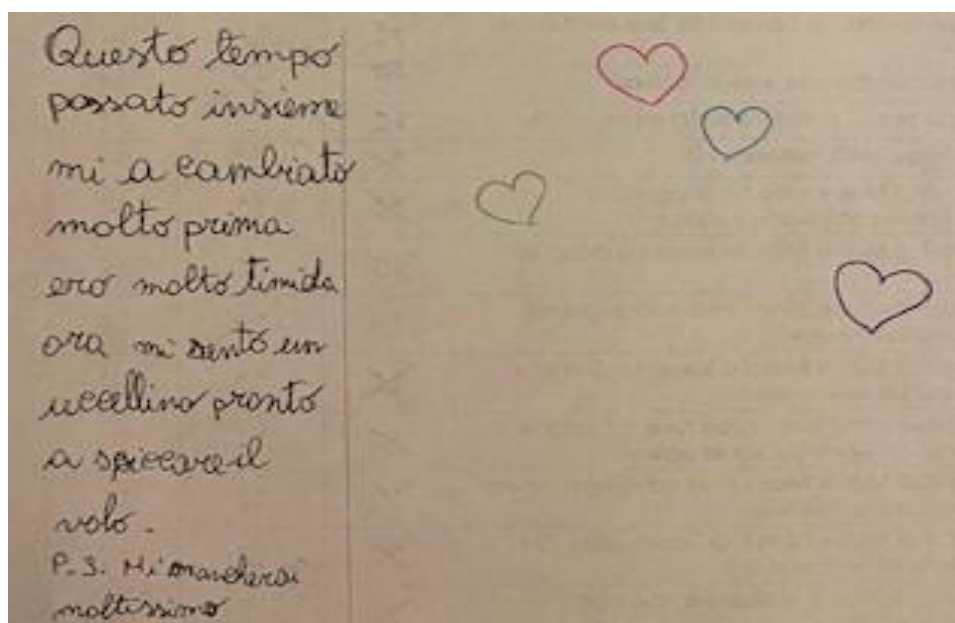 Questo tempo
passato insieme
mi a cambiato
molto prima
ero molto timida
ora mi sento un
uccellino pronto
a spiccare il
volo.
P.S. Mi mancherai
moltissimo